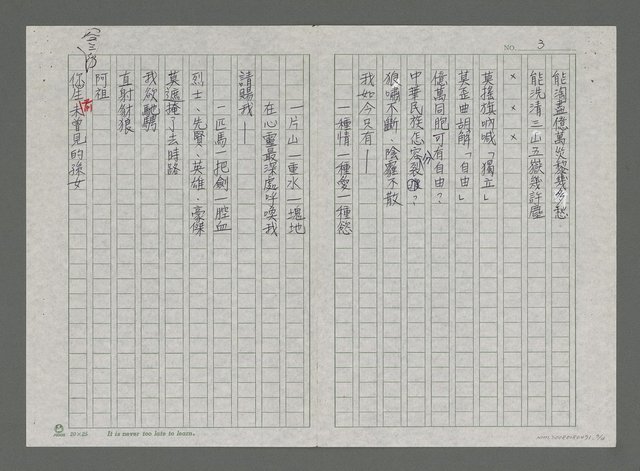 NO. 3
能淘盡億萬災黎幾多愁
能洗清三山五嶽幾許塵
× × ×
莫搖旗吶喊「獨立」
莫歪曲胡解「自由」
億萬同胞可有自由?
中華民族怎容分裂?
狼嘯不斷 陰霾不散
我如今只有—
一種情一種愛一種慾
一片山一重水一塊地
在心靈最深處呼喚我
請賜我—
一匹馬一把劍一腔血
烈士、先賢、英雄、豪傑
莫遮掩了去時路
我欲馳騁
直射豺狼
阿祖
您生前未曾見的孫女
20×25 It is never too late to learn.